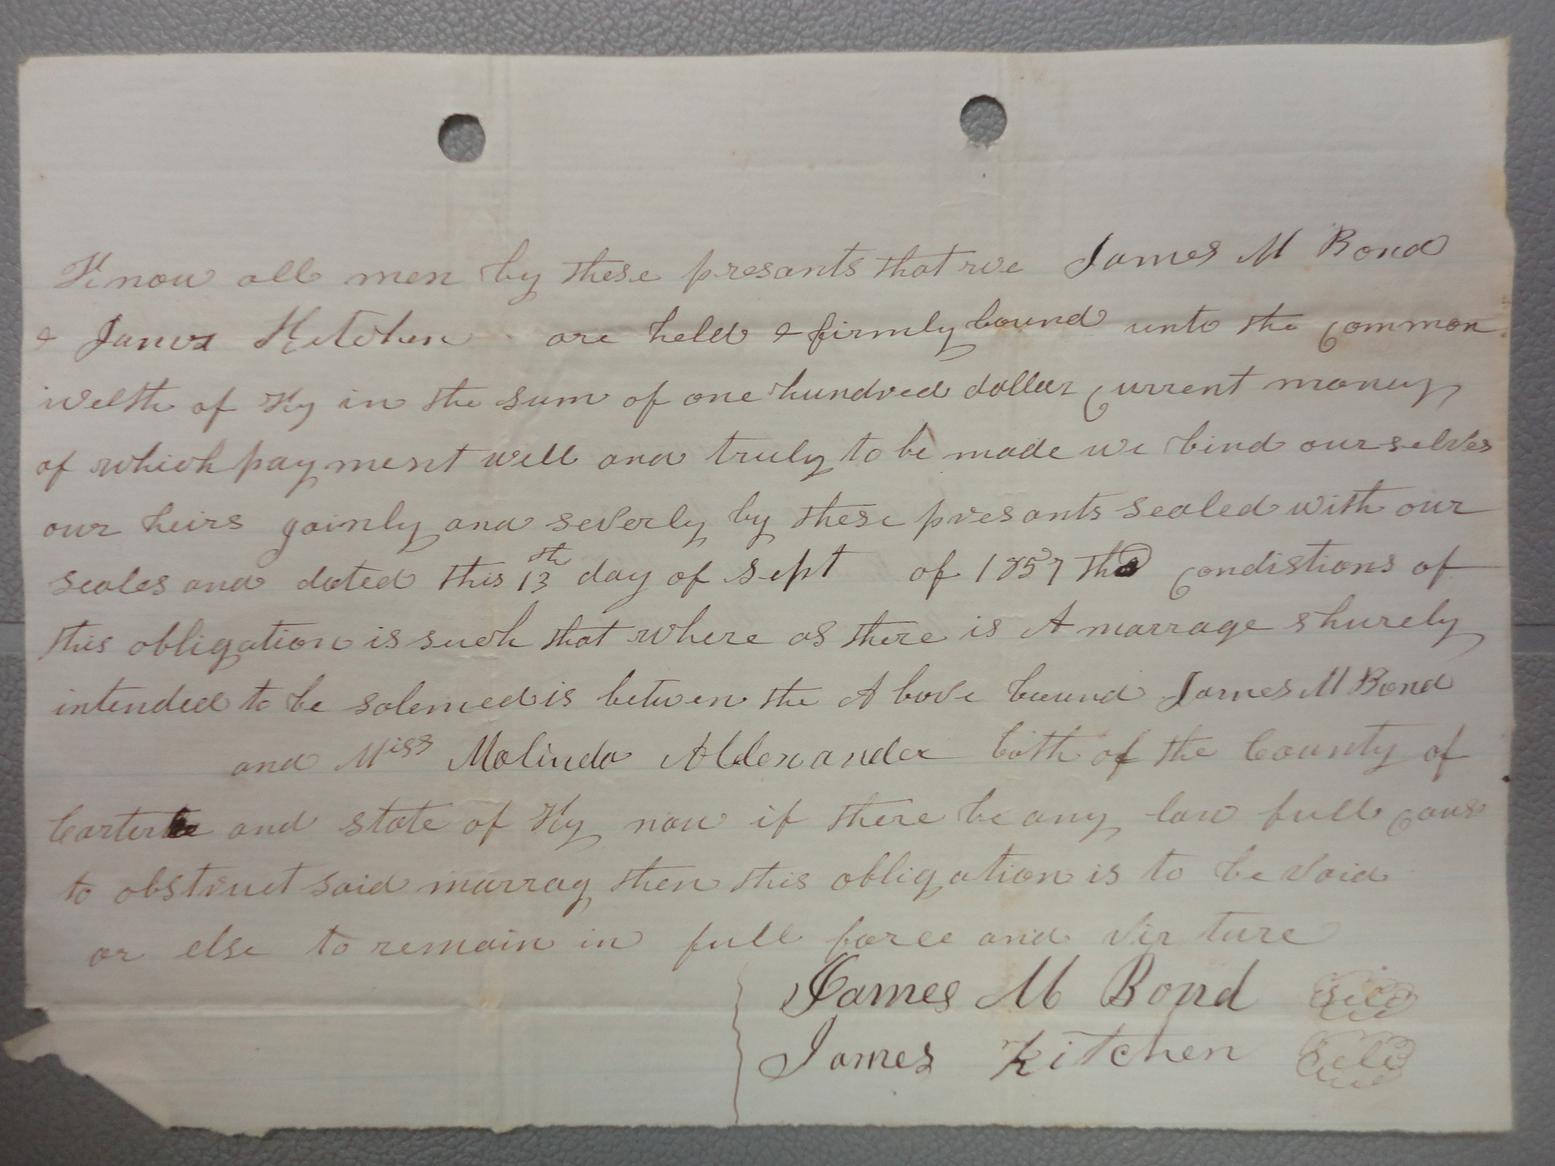 Know all men by these presants that we James M Bond
& James Kitchen are held & firmly bound unto the common
welth of Ky in the sum of one hundred dollar current money
of which payment well and truly to be made we bind ourselves
our heirs gainly and severly by these presants sealed with our
seales and dated this 13th day of Sept of 1857 the condistions of
this obligation is such that where as there is A marrage shurely
intended to be solemedis betwen the Above bound James M Bond
and Miss Malinda Aldexander both of the County of
Carter and state of Ky now if there be any law full caus
to obstruct said marrag then this obligation is to be void
or else to remain in full force and virture
James M Bond Seld
James Kitchen Seld